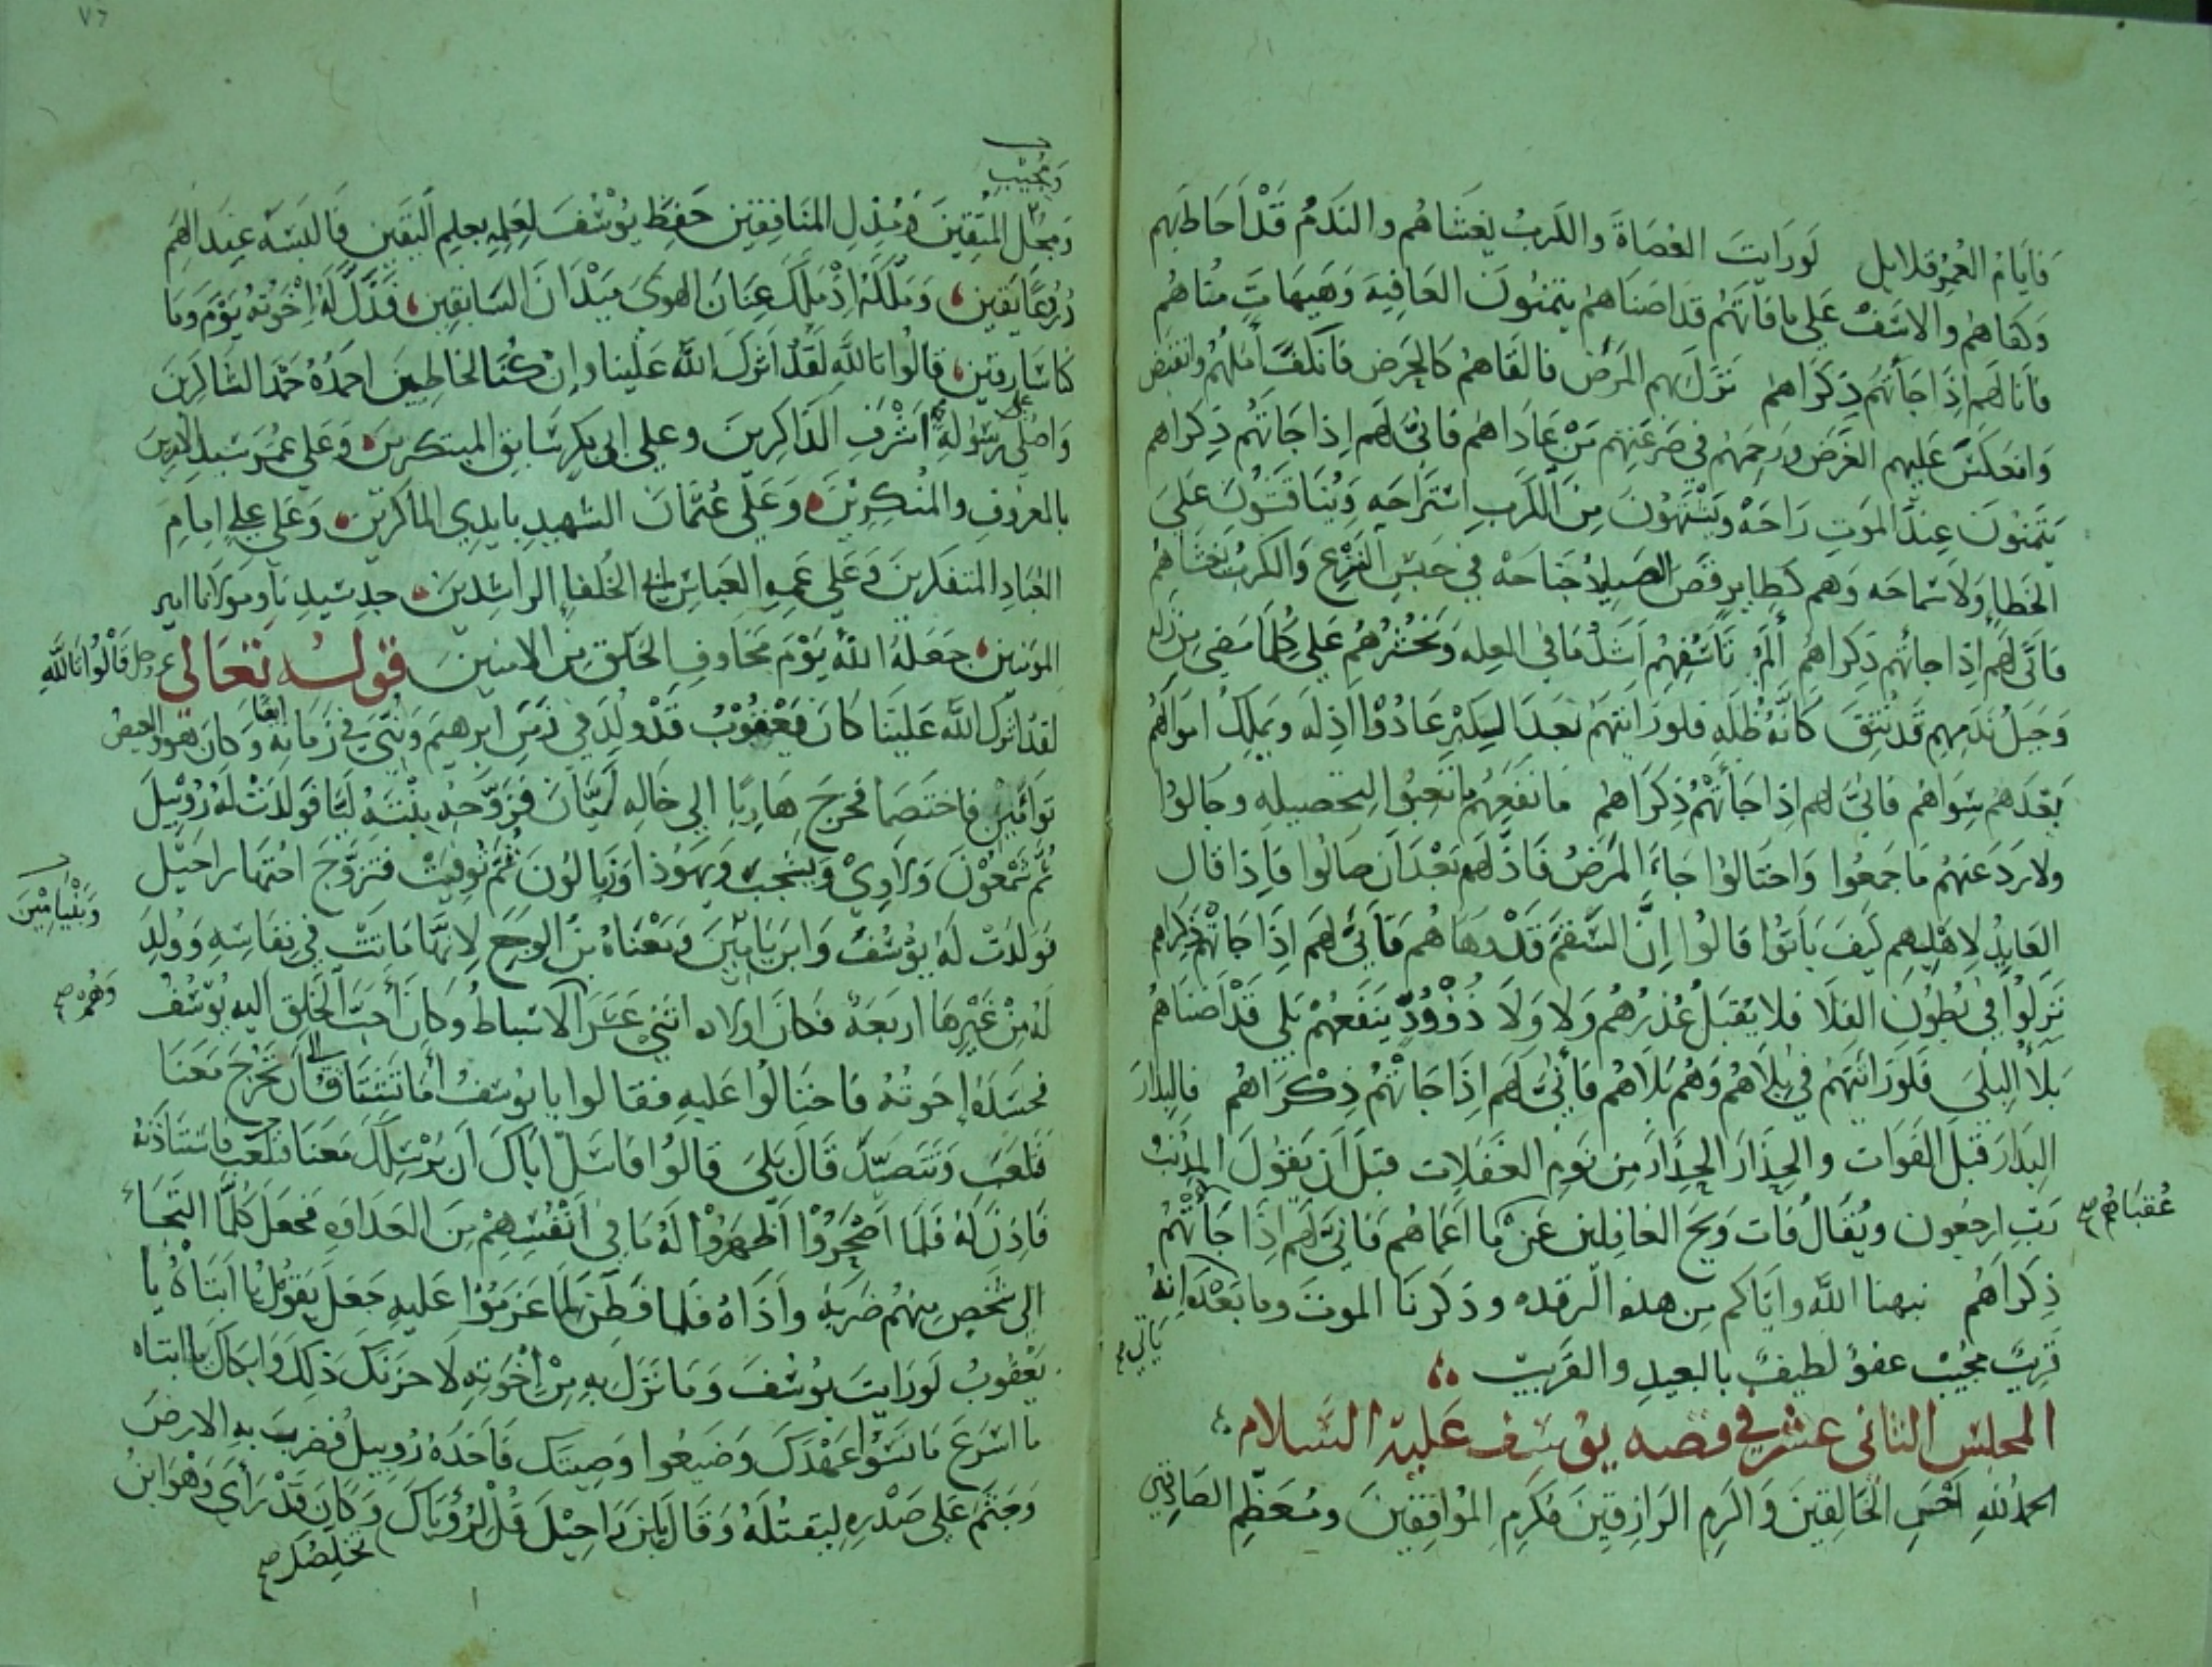 فايام العمر قلايل لو رايت العصاة والكرب يغشاهم والندم قد احاط بهم
وكفاهم والاسف على ما فاتهم قد اضناهم يتمنون العافية وهيهات مناهم
فانا لهم اذا جأتهم ذكراهم نزل بهم المرض فالقاهم كالحرض فانكف املهم وانقبض
وانعكس عليهم الغرض ورحمهم في صرعتهم من عاداهم فانى لهم اذا جاتهم ذكراهم
يتمنون عند الموت راحة ويشتهون من الكرب استراحه ويناقشون على
الخطا ولا سماحه وهم كطاير قص الصياد جناحه في حبس النزع والكرب يغشاهم
فانى لهم اذا جاتهم ذكراهم تاسفهم اشد ما في العله وتحسرهم على كلما مضى من زله
وجبل ندمهم قد نتق كانه ظله فلو رايتهم بعد التكبر عادوا اذله ويملك اموالهم
بعدهم سواهم فانى لهم اذا جأتهم ذكراهم ما نفعهم ما تعبوا لتحصيله وجالوا
ولا رد عنهم ما جمعوا واحتالوا جاء المرض فاذلهم بعد ان صالوا فاذا قال
العايد لاهليهم كيف باتوا قالوا ان السقم قد وهاهم فأنى لهم اذا جاتهم ذكراهم
نزلوا في بطون الفلا فلا يقبل عذرهم ولا ولا ذو ود ينفعهم بلى قد اضناهم
بلا البلى فلو رأيتهم في بلاهم وهم بلاهم فأنى لهم اذا جاتهم ذكراهم فالبدار
البدار قبل الفوات والحذار الحذار من نوم الغفلات قبل ان يقول المذنب
رب ارجعون ويقال فات ويح الغافلين عن ما اعماهم فانى لهم اذا جأتهم
عقباهم صح
ذكراهم نبهنا الله واياكم من هذه الرقده وذكرنا الموت وما بعده انه
ياتي
قريب مجيب عفو لطيف بالبعيد والقريب
المجلس الثاني عشر في قصه يوسف عليه السلام
الحمد لله احسن الخالقين واكرم الرازقين مكرم الموافقين ومعظم الصادقين
ومجيب
ومجل المتقين ومذل المنافقين حفظ يوسف لعلمه بعلم اليقين فالبسه عند الهم
درعا يقين وملكه اذ ملك عنان الهوى ميدان السابقين فذل له اخوته يوم وما
كنا سارقين قالوا تالله لقد اثرك الله علينا وان كنا لخاطيين احمده حمد الشاكرين
واصلى على رسوله اشرف الذاكرين وعلى ابى بكر سابق المبتكرين وعلى عمر سيد الامرين
بالمعروف والمنكرين وعلى عثمان الشهيد بايدي الماكرين وعلى على امام
العباد المتفكرين وعلى عمه العباس ابي الخلفا الراشدين جد سيدنا ومولانا امير
المومنين جعله الله يوم مخاوف الخلق من الامنين قوله تعالى عز وجل قالوا تالله
لقد اثرك الله علينا كان يعقوب قد ولد في زمن ابرهيم ونبي في زمانه ايضا وكان هو والعيص
توأمين فاختصما فخرج هاربا الى خاله ليان فزوجه بنته ليا فولدت له روبيل
ثم شمعون ولاوي ويشجب ويهوذا وزبالون ثم توفيت فتزوج اختها راحيل
فولدت له يوسف وابن يامين ومعناه بن الوجع لانها ماتت في نفاسه وولد
وبنيامين
له من غيرها اربعة فكان اولاده اثني عشر الاسباط وكان أحب الخلق اليه يوسف
وهم صح
فحسده إخوته فاحتالوا عليه فقالوا يا يوسف أما تشتاق الى ان تخرج معنا
فتلعب وتتصيد قال بلى قالوا فاسل اباك ان يرسلك معنا فتلعب فاستأذنه
فاذن له فلما اصحروا اظهروا له ما في انفسهم من العداوه فجعل كلما التجاء
الى شخص منهم ضربه وأذاه فلما فطن لما عزموا عليه جعل يقول يا ابتاه يا
يعقوب لو رايت يوسف وما نزل به من اخوته لاحزنك ذلك وابكاك يا ابتاه
ما اسرع ما نسوا عهدك وضيعوا وصيتك فاخذه روبيل فضرب به الارض
وجثم على صدره ليقتله وقال يا ابن راحيل قل لرؤياك وكان قد رأى وهو ابن
تخلصك صح